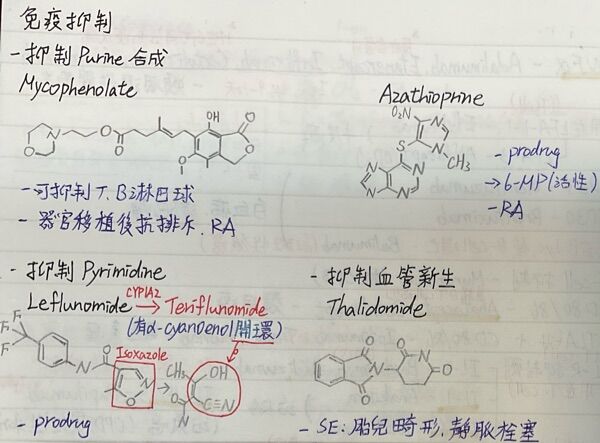 免疫抑制
- 抑制 Purine 合成
Mycophenolate
Azathioprine
- 可抑制 T. B淋巴球
- 器官移植後抗排斥. RA
- prodrug
→ 6-MP(活性)
- RA
- 抑制 Pyrimidine
Leflunomide CYP1A2→ Teriflunomide
(有α-cyanoenol開環)
Isoxazole
- prodrug
- 抑制血管新生
Thalidomide
- SE: 胎兒畸形. 靜脈栓塞